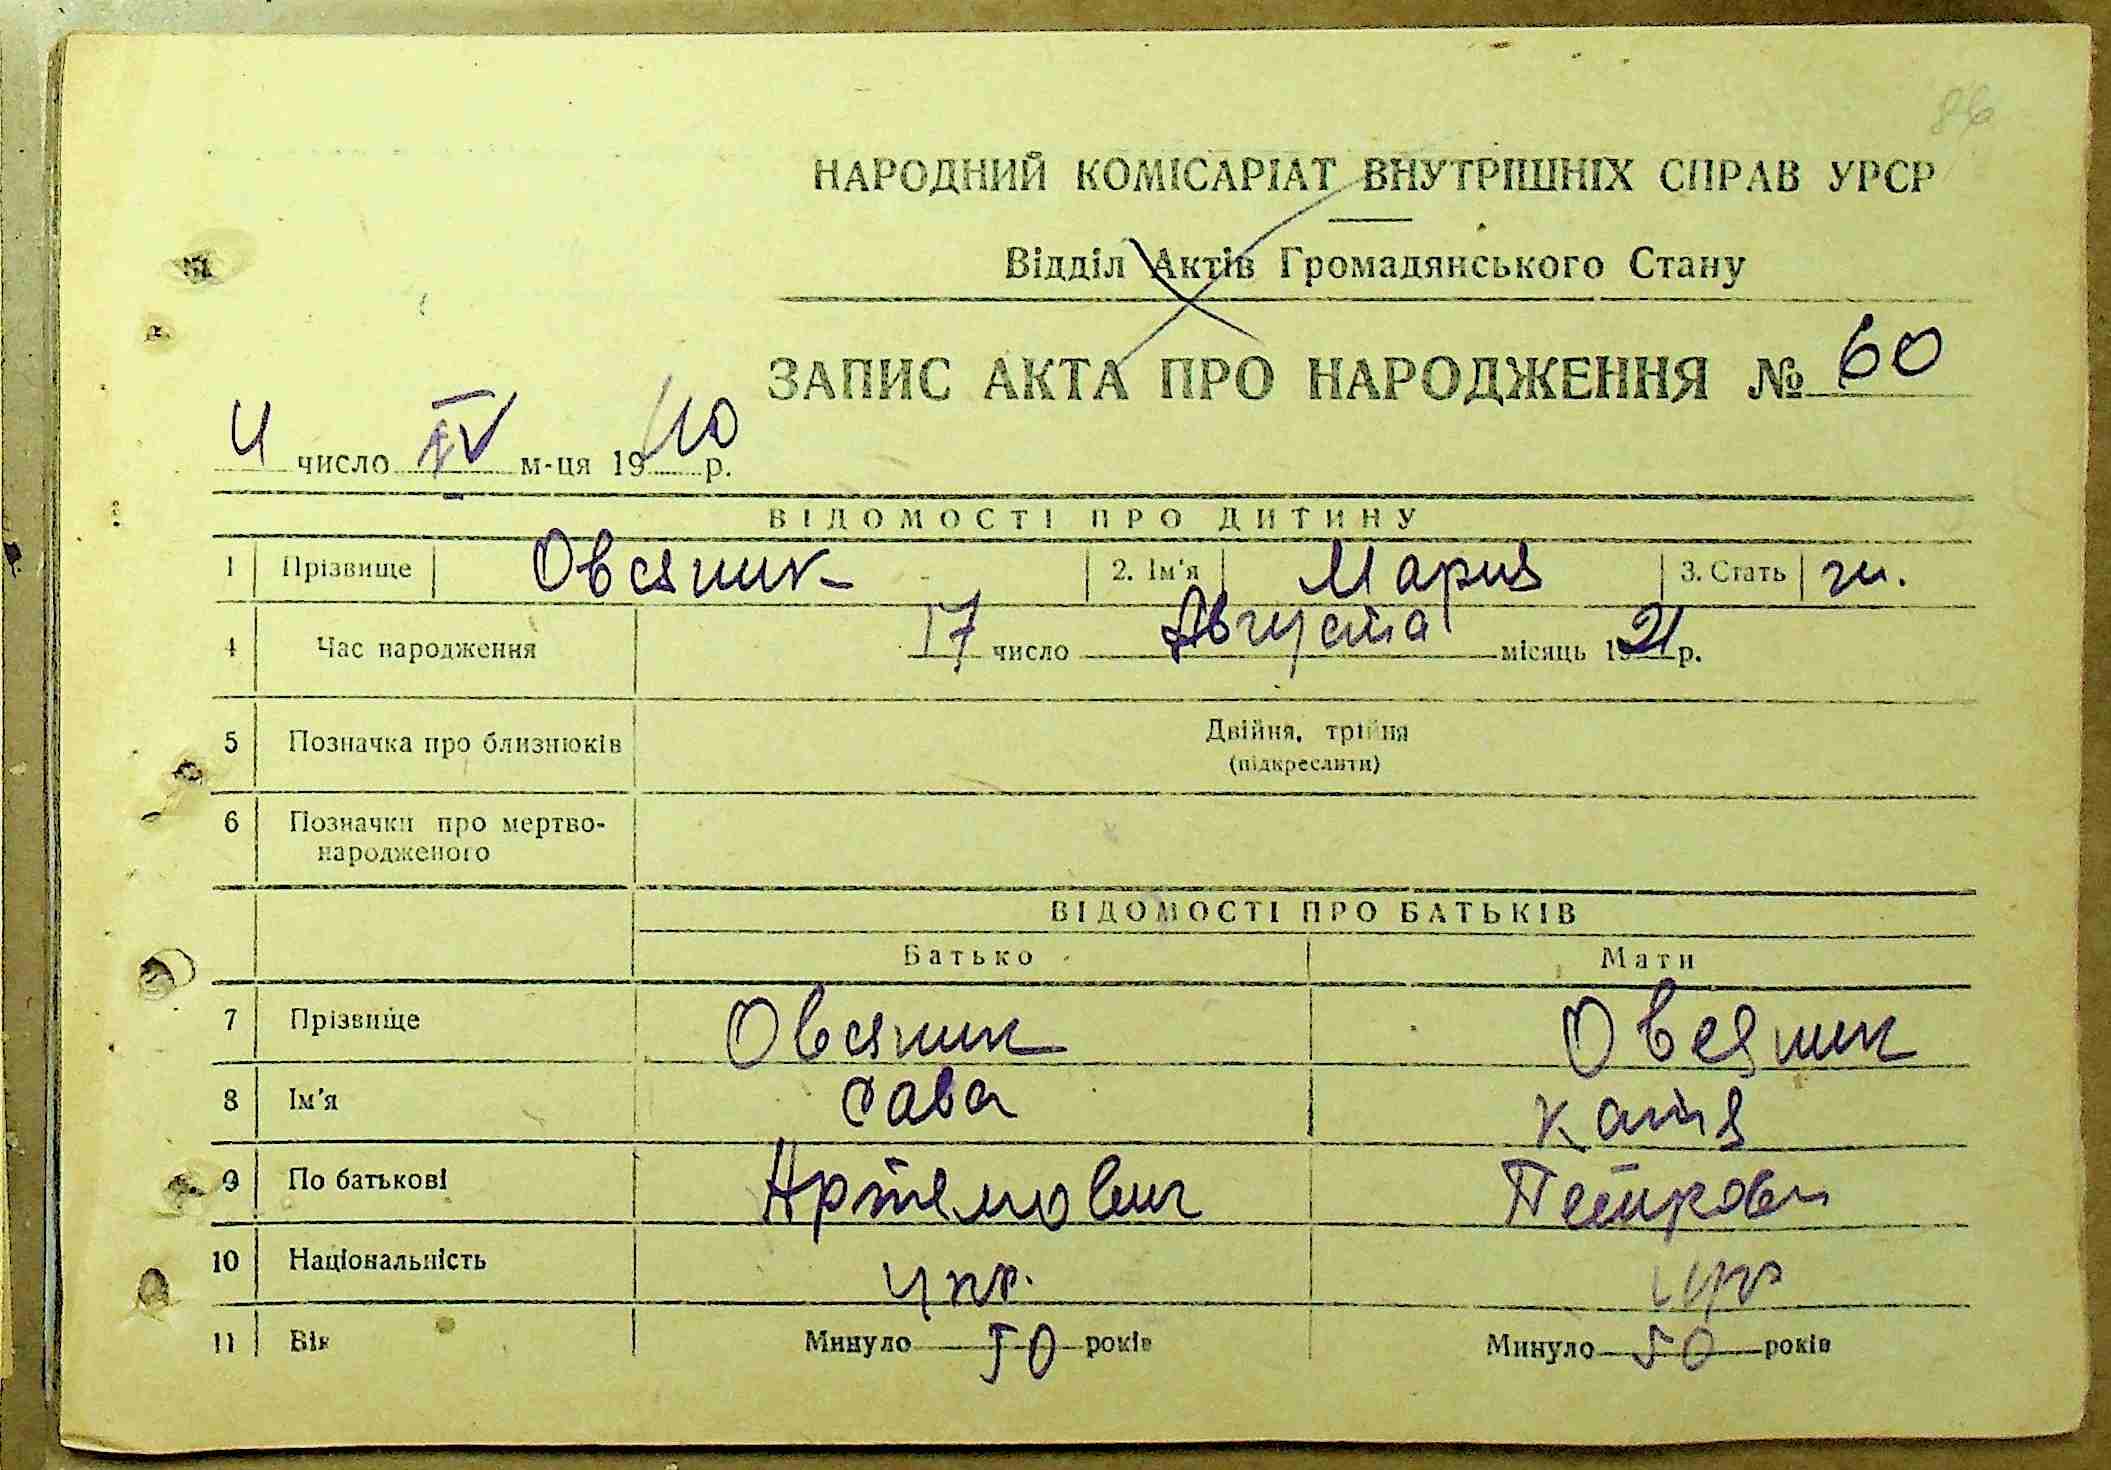 86
НАРОДНИЙ КОМІСАРІАТ ВНУТРІШНІХ СПРАВ УРСР
Відділ Актів Громадянського Стану
ЗАПИС АКТА ПРО НАРОДЖЕННЯ № 60
4 число IV м-ця 1940 р.
ВІДОМОСТІ ПРО ДИТИНУ
1 Прізвище Овсяник 2. Ім'я Мария 3. Стать ж.
4 Час народження 17 число Августа місяць 1921 р.
5 Позначка про близнюків Двійня, трійня
(підкреслити)
6 Позначки про мертво-
народженого
ВІДОМОСТІ ПРО БАТЬКІВ
Батько Мати
7 Прізвище Овсяник Овсяник
8 Ім'я Сава Катя
9 По батькові Артемович Петровн
10 Національність укр. укр
11 Вік Минуло 50 років Минуло 50 років